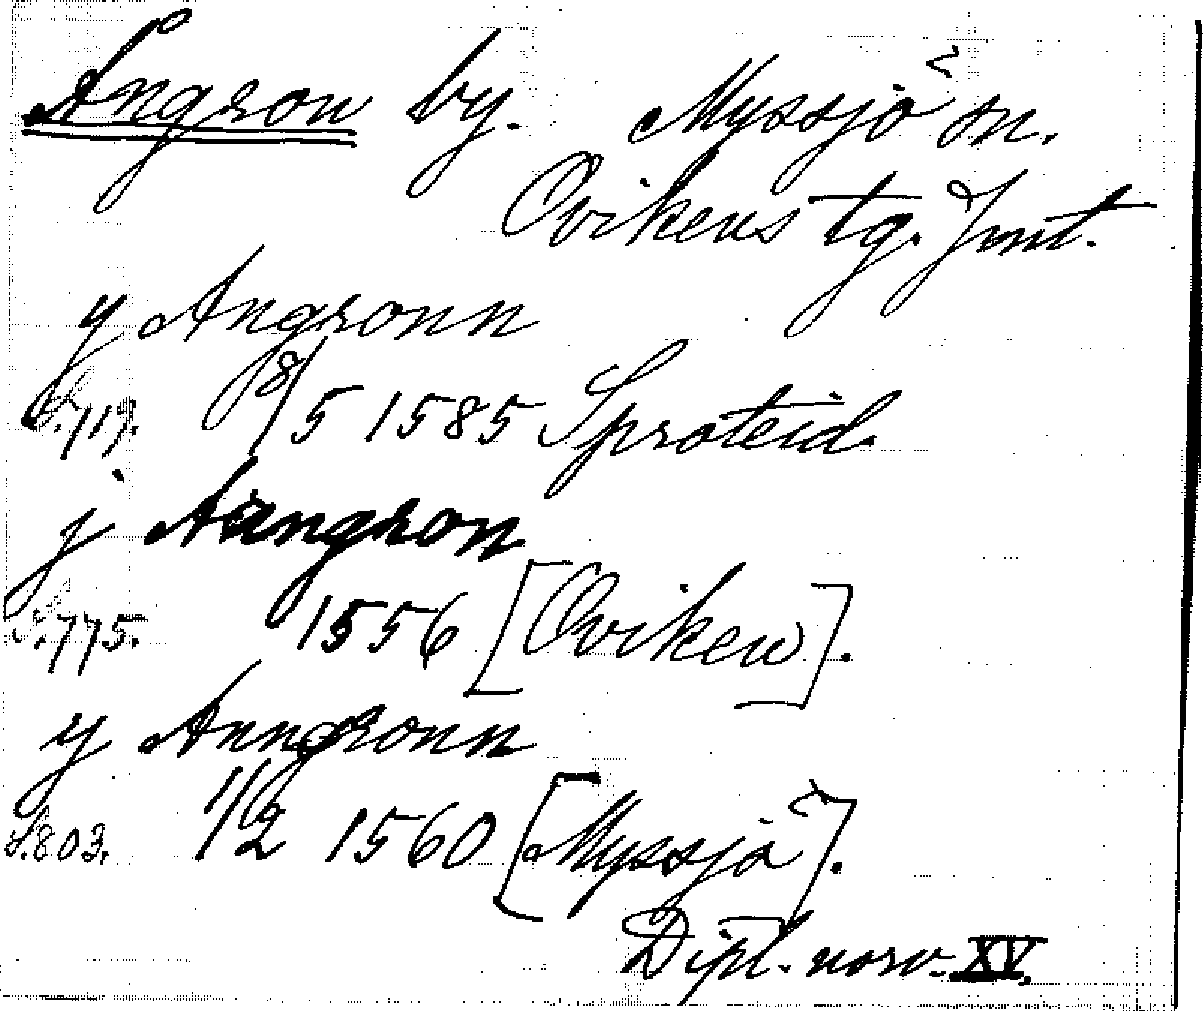 Angron by. Myssjö sn.
Ovikens tg. Jmt.
y Angronn
S. 719. 18/5 1585 Sproteid.
j Aangron
S. 775. 1556 [Oviken].
y Anngronn
S. 803. 1/2 1560 [Myssjö].
Dipl. norv. XV.